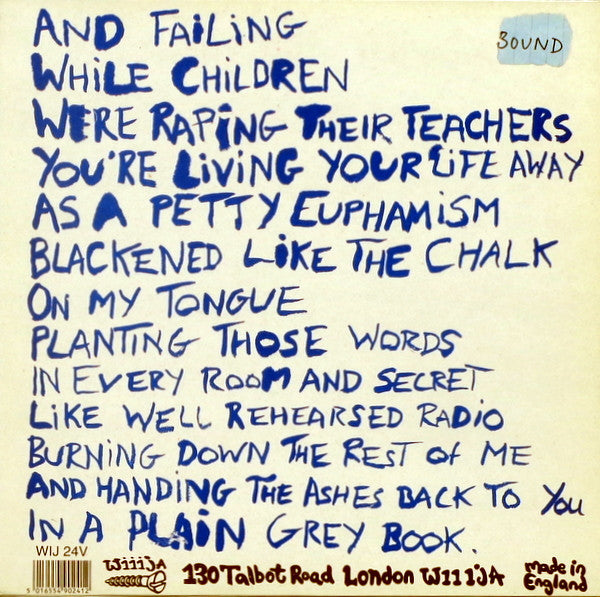 AND FAiLiNG
BOUND
WHILE CHILDREN
WERE RAPiNG THEIR TEACHERS
YOU'RE LiViNG YOUR LiFE AWAY
AS A PETTY EUPHAMiSM
BLACKENED LiKE THE CHALK
ON MY TONGUE
PLANTING THOSE WORDS
IN EVERY ROOM AND SECRET
LiKE WELL REHEARSED RADiO
BURNiNG DOWN THE REST of ME
AND HANDING THE ASHES BACK TO YOU
IN A PLAIN GREY BOOK.
WIJ 24V
5 016554 902412
WiiiJA
130 Talbot Road London W111JA
made in
England